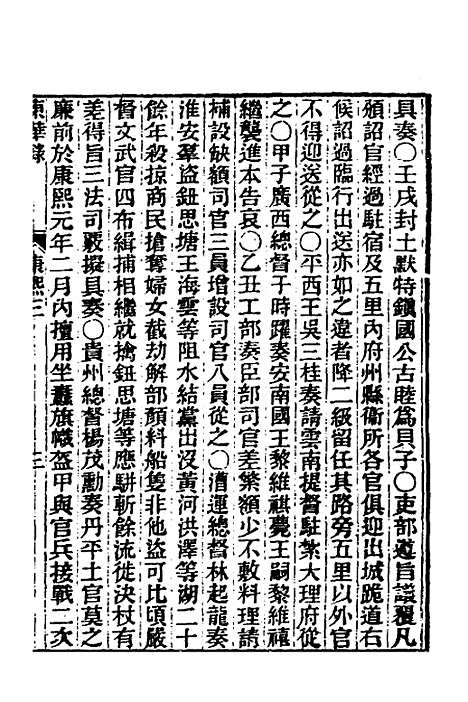 具奏○壬戌封土默特鎭國公古睦爲貝子○吏部遵旨議覆凡
頒詔官經過駐宿及五里內府州縣衞所各官俱迎出城跪道右
候詔過臨行出送亦如之違者降二級留任其路旁五里以外官
不得迎送從之○平西王吳三桂奏請雲南提督駐紮大理府從
之○甲子廣西總督于時躍奏安南國王黎維祺薨王嗣黎維禧
繼襲進本告哀○乙丑工部奏臣部司官差繁額少不敷料理請
補設缺額司官三員增設司官八員從之○漕運總督林起龍奏
淮安羣盜鈕思塘王海雲等阻水結黨出沒黃河洪澤等湖二十
餘年殺掠商民搶奪婦女截劫解部顏料船隻非他盜可比頃嚴
督文武官四布緝捕相繼就擒鈕思塘等應駢斬餘流徙決杖有
差得旨三法司覈擬具奏○貴州總督楊茂勳奏丹平土官莫之
廉前於康熙元年二月內擅用坐纛旗幟盔甲與官兵接戰二次
東華錄
康熙三
三